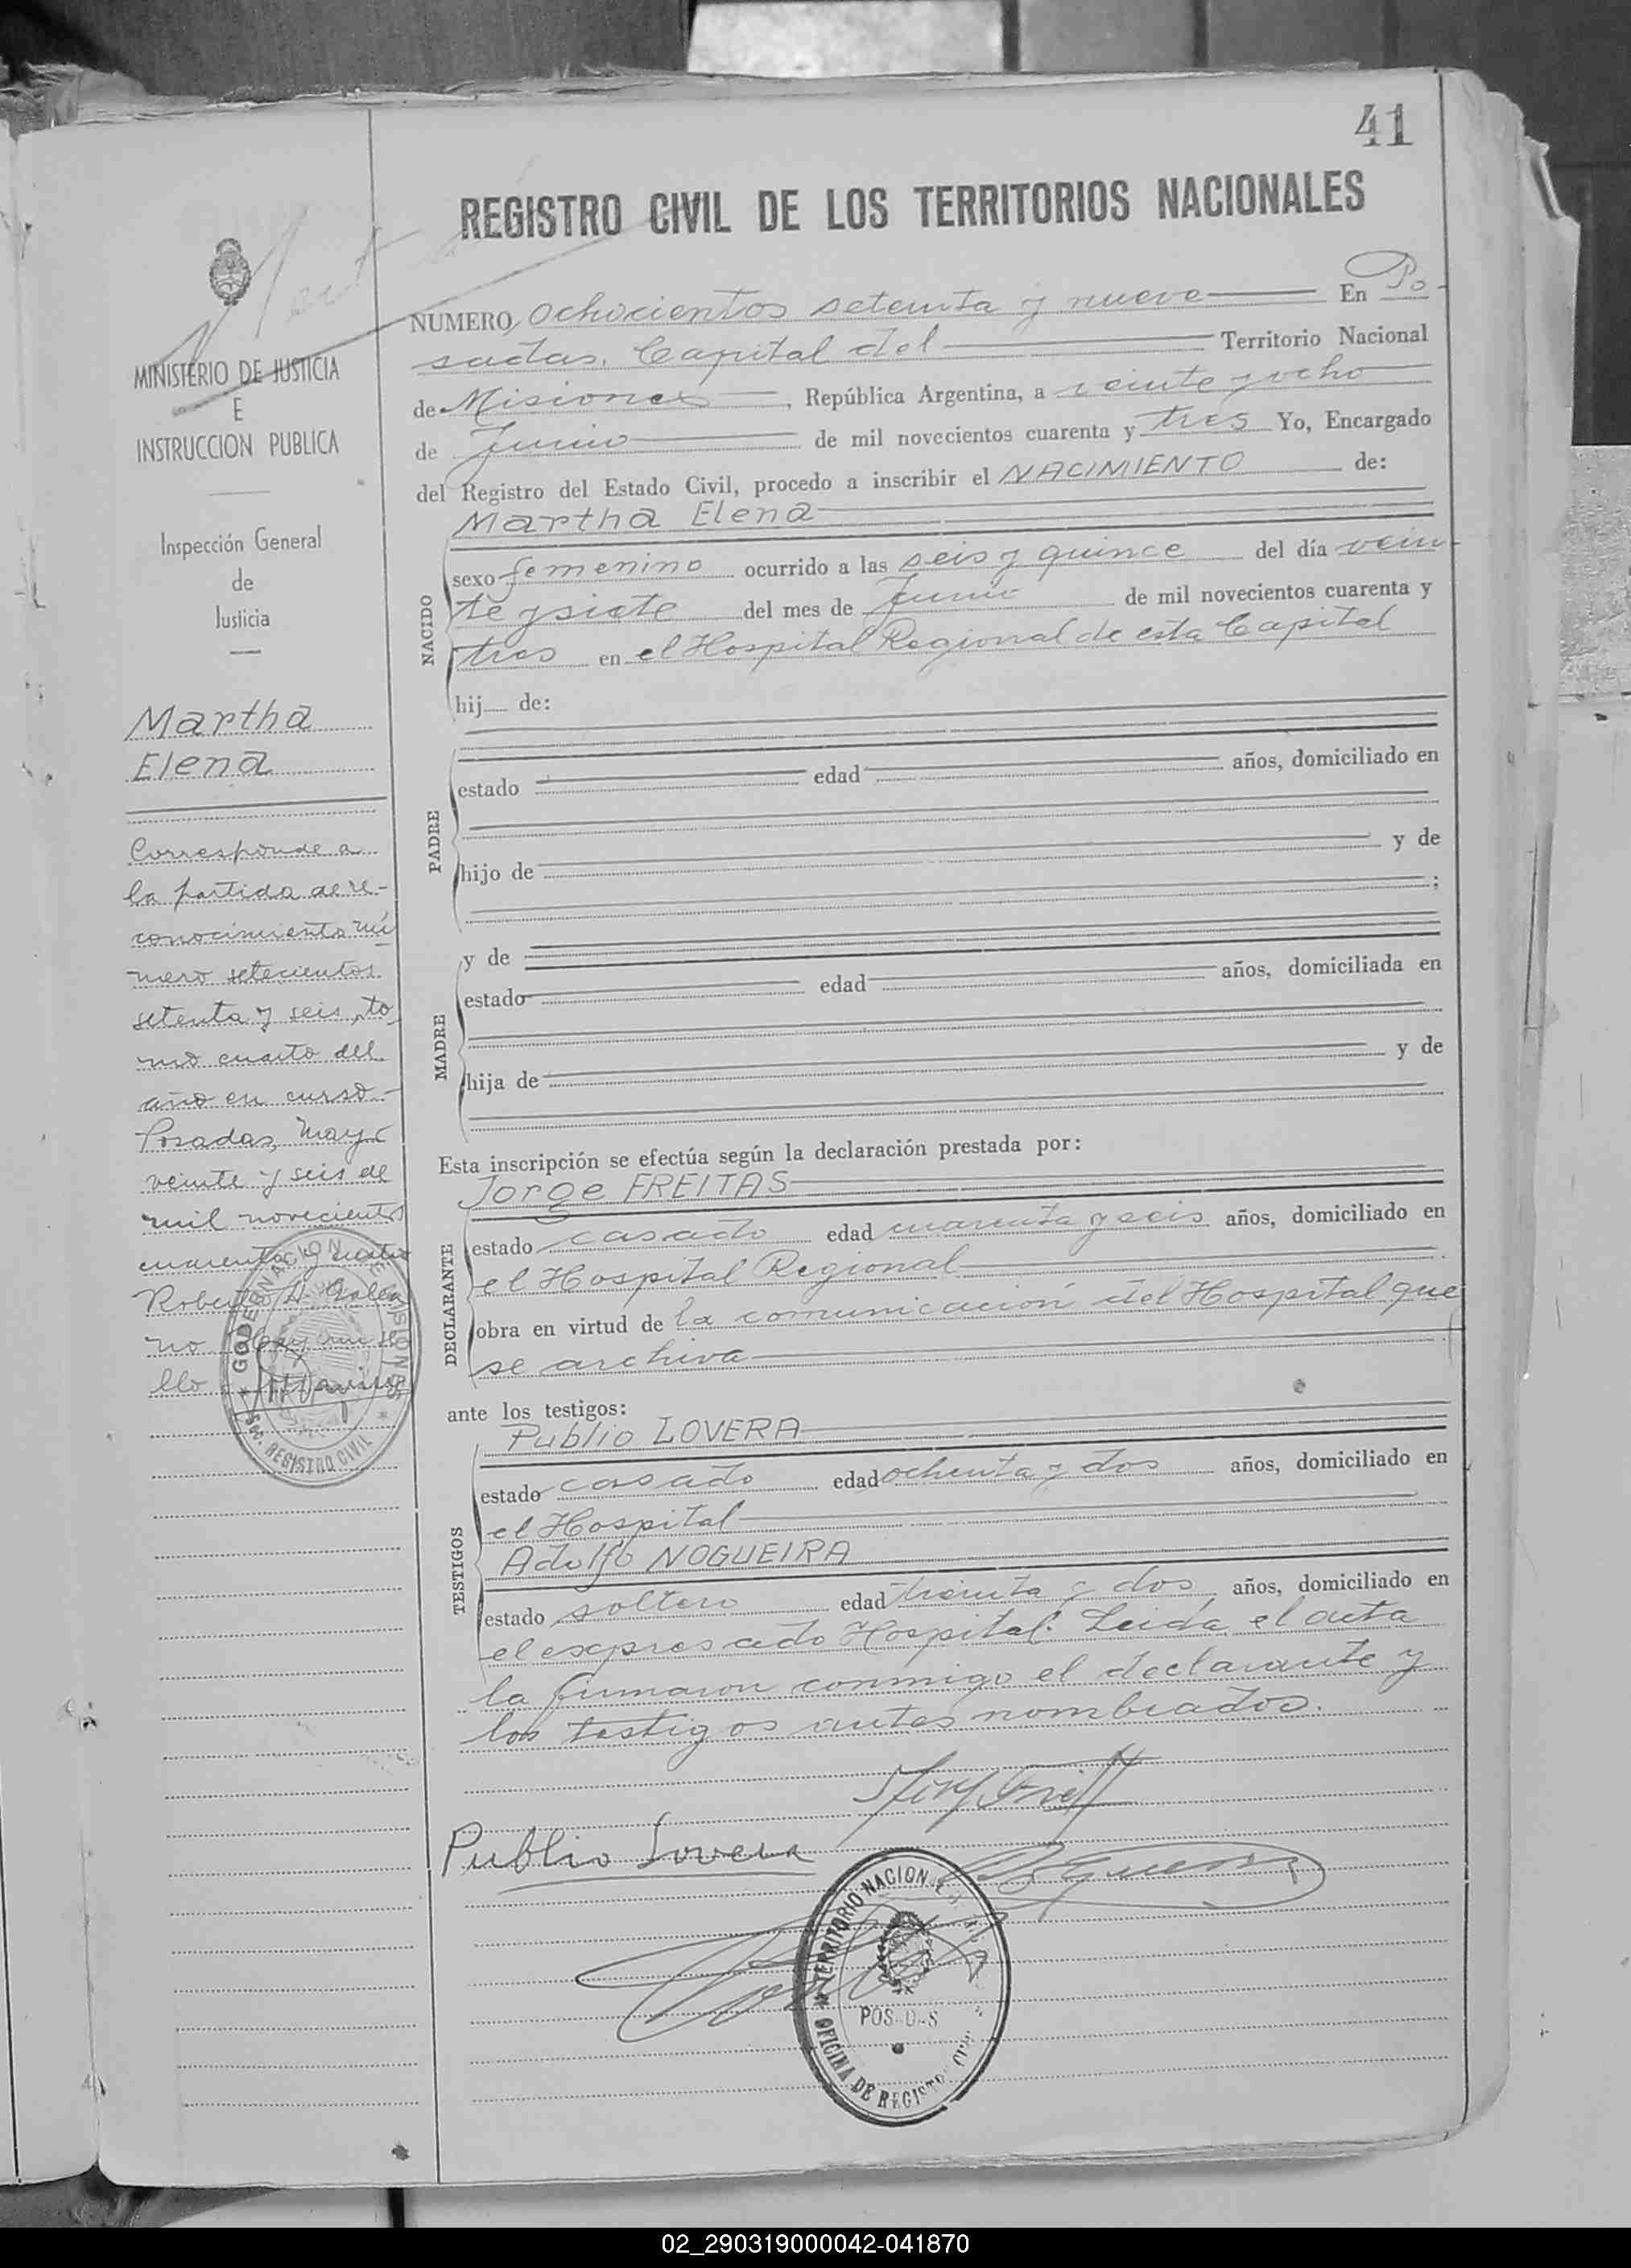 41
REGISTRO CIVIL DE LOS TERRITORIOS NACIONALES
NUMERO, Ochocientos setenta y nueve En Po-
sadas, Capital del Territorio Nacional
de Misiones, República Argentina, a veinte y ocho
de Junio de mil novecientos cuarenta y tres Yo, Encargado
del Registro del Estado Civil, procedo a inscribir el NACIMIENTO de:
Martha Elena
NACIDO
sexo femenino ocurrido a las seis y quince del día vein-
te y siete del mes de Junio de mil novecientos cuarenta y
tres en el Hospital Regional de esta Capital
hij de:
PADRE
estado edad años, domiciliado en
hijo de y de
;
MADRE
y de
estado edad años, domiciliada en
hija de y de
Esta inscripción se efectúa según la declaración prestada por:
Jorge FREITAS
DECLARANTE
estado casado edad cuarenta y seis años, domiciliado en
el Hospital Regional
obra en virtud de la comunicación del Hospital que
se archiva
ante los testigos:
Publio LOVERA
TESTIGOS
estado casado edad ochenta y dos años, domiciliado en
el Hospital
Adolfo NOGUEIRA
estado soltero edad treinta y dos años, domiciliado en
el expresado Hospital. Leida el acta
la firmaron conmigo el declarante y
los testigos antes nombrados.
Publio Lovera
TERRITORIO NACIONAL
POS D S
OFICINA DE REGISTRO CIVIL
MINISTERIO DE JUSTICIA
E
INSTRUCCION PUBLICA
Inspección General
de
Justicia
Martha
Elena
Corresponde a
la partida de re-
conocimiento nú
mero setecientos
setenta y seis, to
mo cuarto del
año en curso.-
Posadas, Mayo
veinte y seis de
mil novecientos
cuarenta y cuatro
Roberto A. Galea
no Hay un se
llo
GOBERNACION DE MISIONES
Sec. REGISTRO CIVIL
02_290319000042-041870